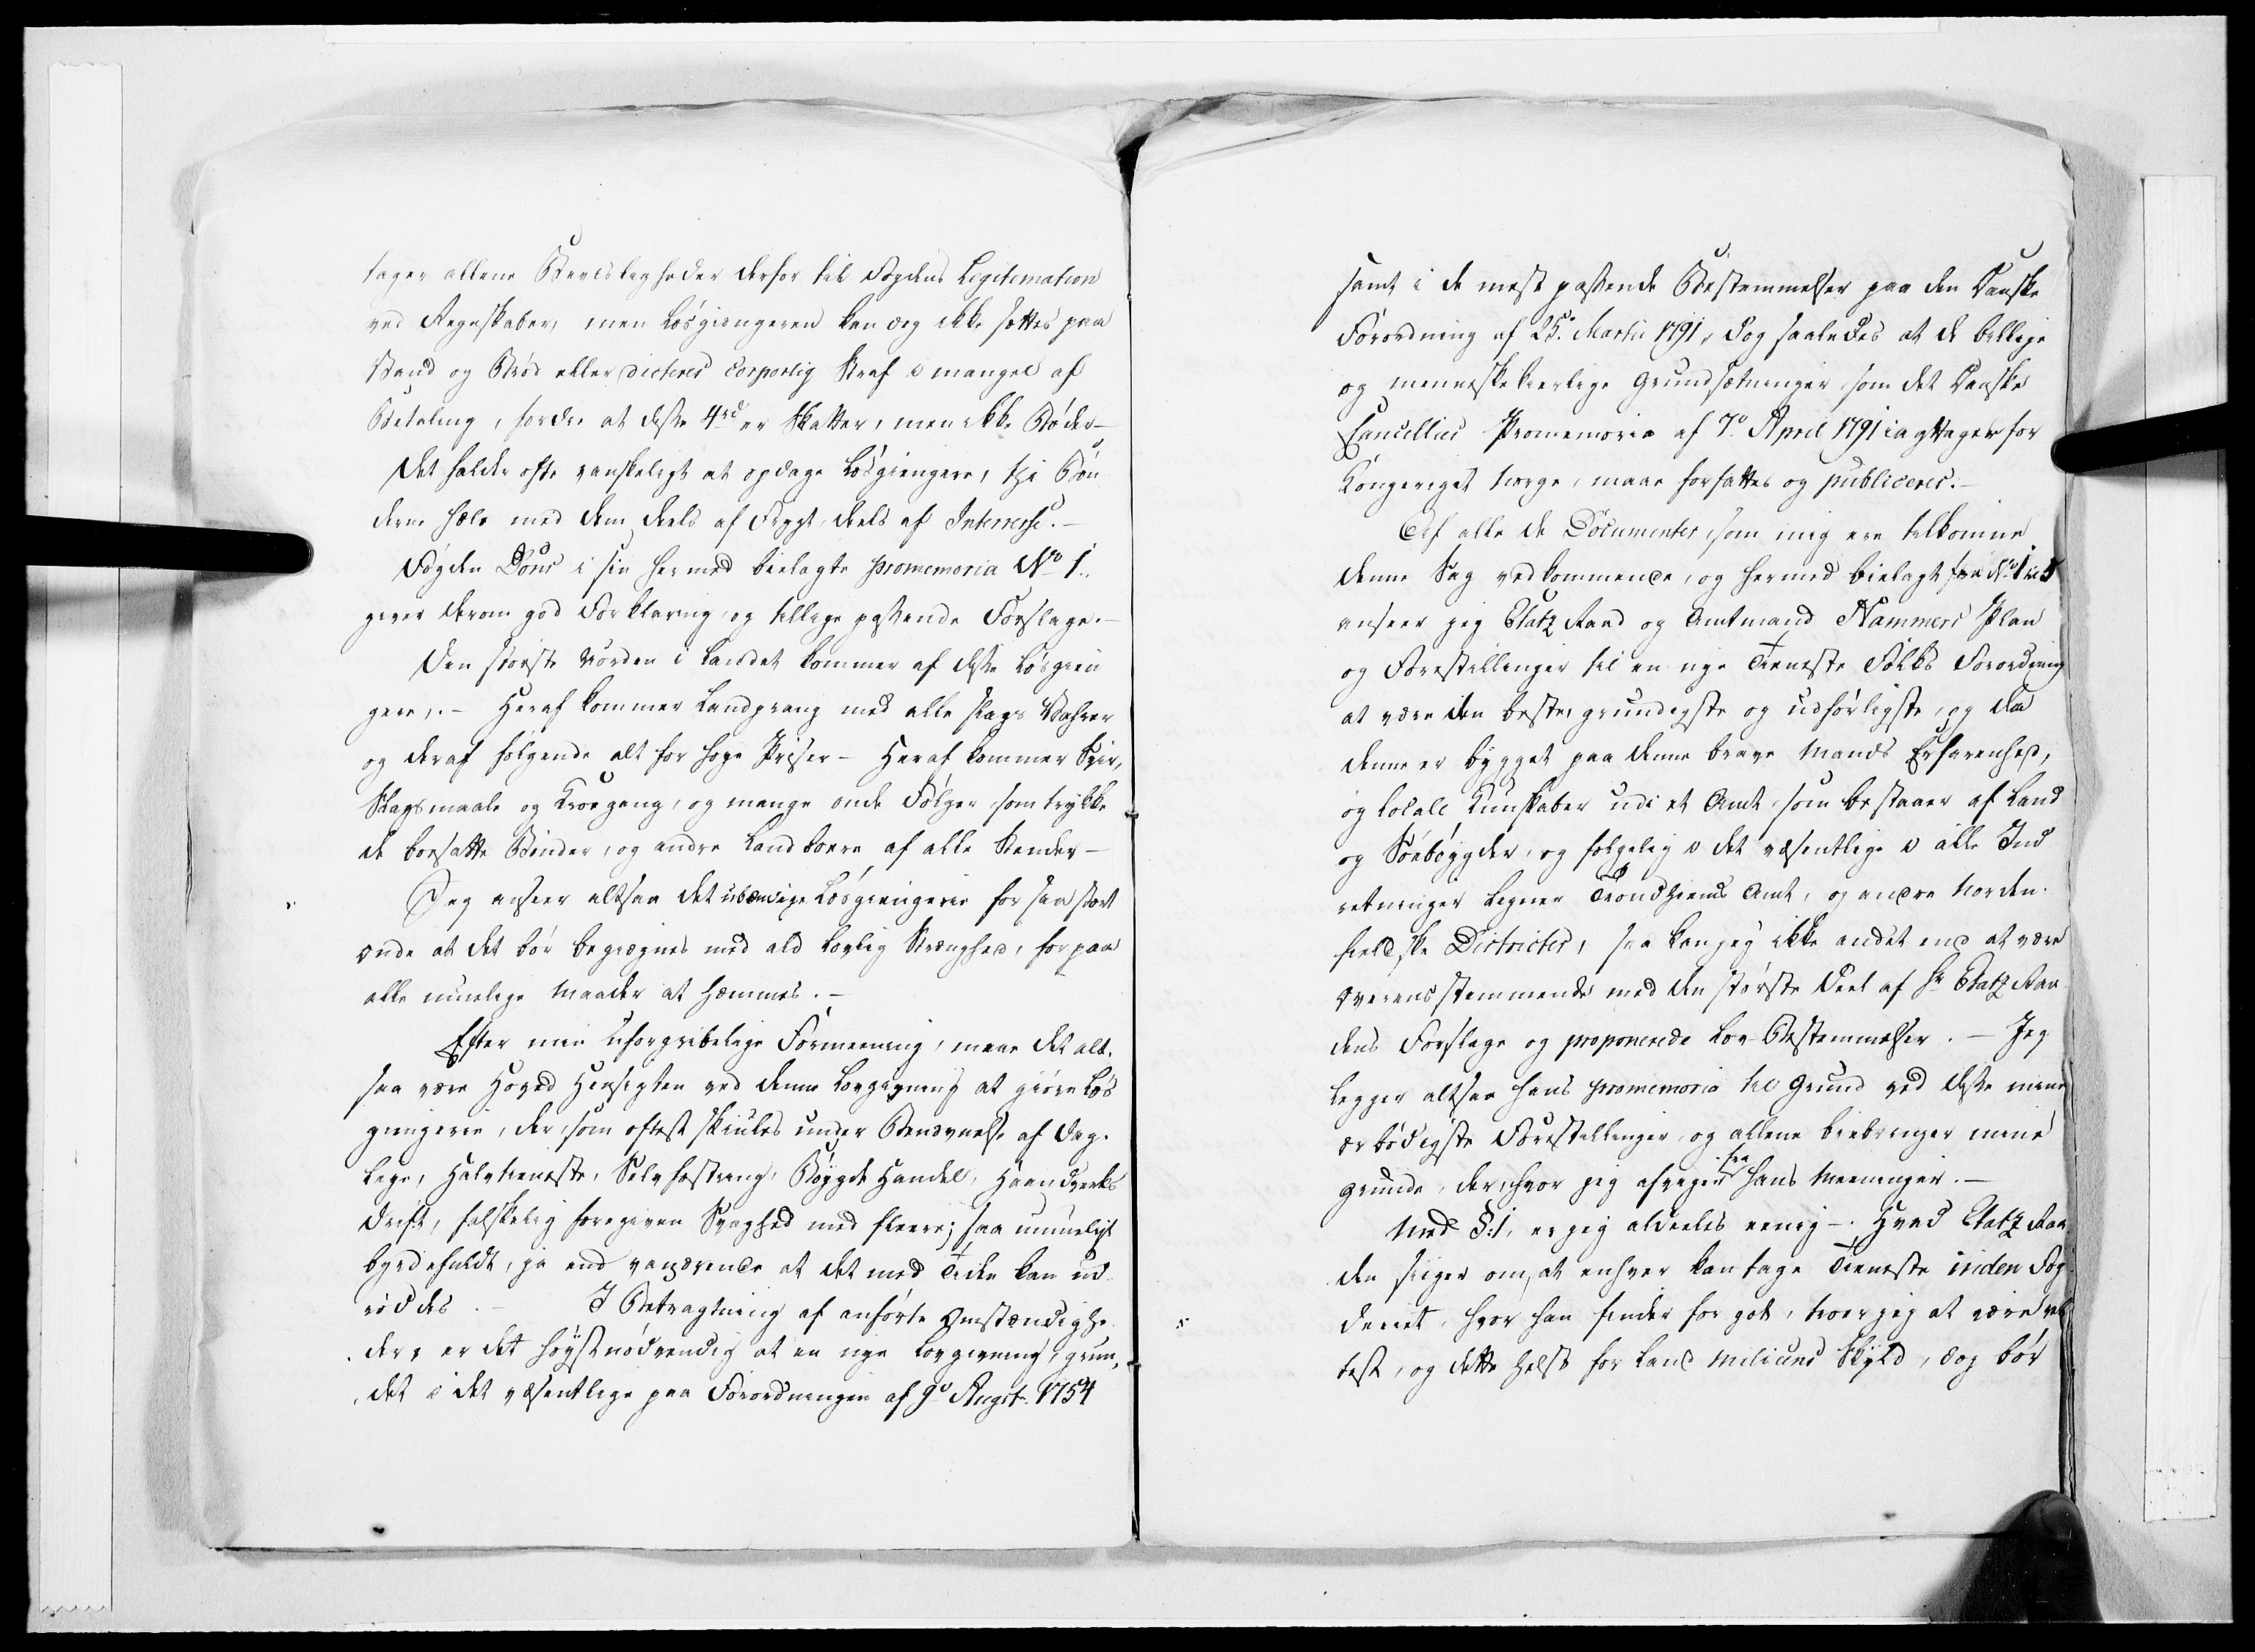 tager allene Beviisligheder derfor til Fogdens Legitimation
ved Regnskaber, men Løsgiængeren kan dog ikke sættes paa
Vand og Brød eller dicteres corporlig Straf i mangel af
Betaling, fordi at disse 4 rd er Skatter, men ikke Bøder –
Det falder ofte vanskeligt at opdage Løsgiængere, thi Bøn
derne holde med dem deels af Frygt, deels af Interresse. –
Fogden Dons i sin hermed bielagte promemoria No 1.
giver derom god Forklaring og tillige passende Forslage. –
Den største Uorden i Landet kommer af disse Løsgiæn
gere, – Heraf kommer Landprang med alle slags Vahrer
og deraf følgende alt for høye Priser – Heraf kommer Svir,
Slagsmaale og Kroegang, og mange onde Følger som trykke
de boesatte Bønder, og andre Landboere af alle Stænder –
Jeg anseer altsaa det Løsgiængerie for saa stort
onde at det bør begiægnes med ald lovlig Strænghed, for paa
alle muelige Maader at hæmmes. –
Efter min uforgribelige Formeening, maae det alt-
saa være Hoved Hensigten ved denne Lovgivning at giøre Løs
giængerie, der, som oftest skiules under Benævnelse af Dag-
leye, Halvtieneste, Selvfæstning, Bøygde Handel, Haandverks
Drift, falskelig foregiven Svaghed med fleere; saa umueligt
byrdefuldt, ja end vanærende at det med Tiden kan ud
røddes. – I Betragtning af anførte Omstændighe
der, er det høystnødvendig at en nye Lovgivning, grun-
det i det væsentlige paa Forordningen af 9de Augst. 1754
samt i de mest passende Bestemmelser paa den Danske
Forordning af 25. Martii 1791, dog saaledes at de billige
og menneskekierlige Grundsætninger som det Danske
Cancellies Promemoria af 7de April 1791 iagttager for
Kongeriget Norge, maae forfattes og publiceres. –
Af alle de Documenter, som mig ere tilkomne
denne Sag vedkommende, og hermed bielagt fra No 1 til 5
anseer jeg Etatz Raad og Amtmand Hammers Plan
og Forestillinger til en nye Tieneste Folks Forordning
at være den beste, grundigste og udførligste, og da
denne er bygget paa denne brave Mands Erfarenhed,
og locale Kundskaber udi et Amt som bestaaer af Land
og Søebøygder, og følgelig i det væsentlige i alle Ind
retninger ligner Trondhiems Amt, og andre Norden-
fieldske Districter, saa kan jeg ikke andet end at være
overensstemmende med den største Deel af Hr Etatz Raa
dens Forslage og proponerede Lov-Bestemmelser. – Jeg
legger altsaa hans promemoria til Grund ved disse mine
ærbødigste Forestillinger, og allene biebringer mine
Grunde, der, hvor jeg afviger fra hans Meeninger. –
Med §: 1, er jeg aldeeles eenig –. Hvad Etatz Raa
den siiger om, at enhver kan tage Tieneste inden Fog
deriet, hvor han finder for got, troer jeg at være ret
test, og dette helst for Land Miliciens Skyld, dog bør